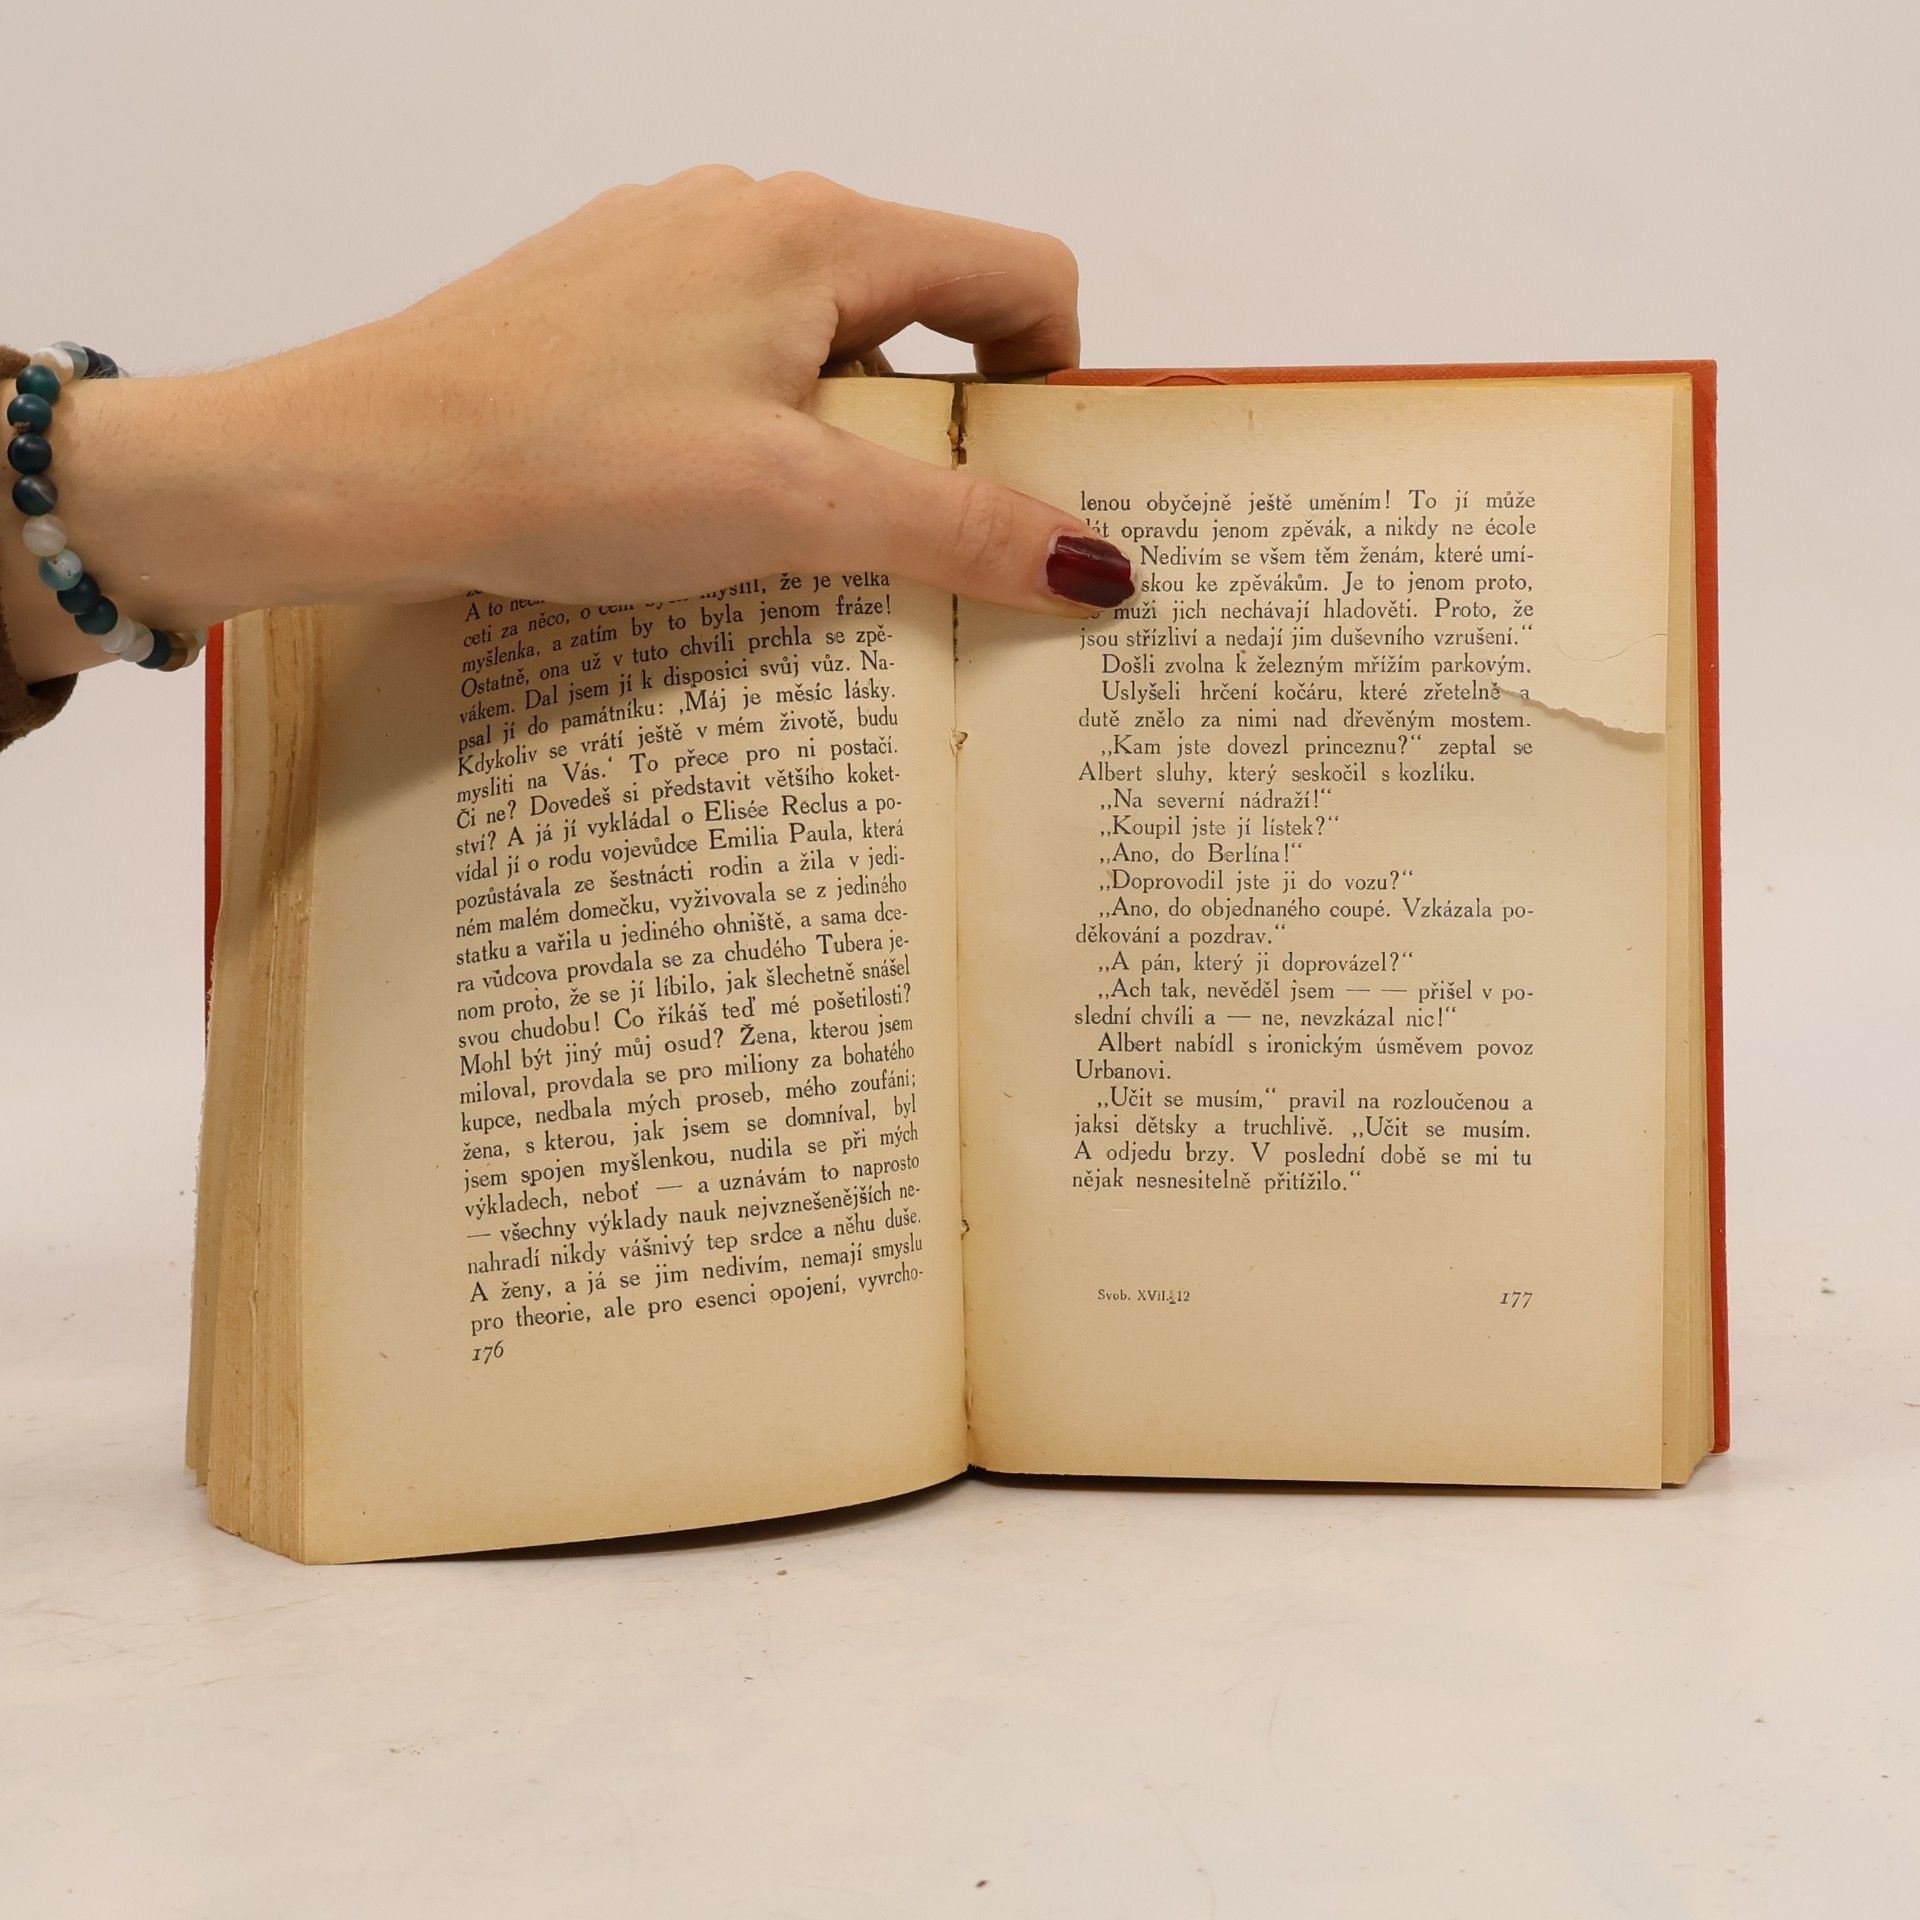 A to
že je velká
ceti za něco, o čem bych myslil,
myšlenka, a zatím by to byla jenom fráze!
Ostatně, ona už v tuto chvíli prchla se zpě-
vákem. Dal jsem jí k disposici svůj vůz. Na-
psal jí do památníku: ‚Máj je měsíc lásky.
Kdykoliv se vrátí ještě v mém životě, budu
mysliti na Vás.‘ To přece pro ni postačí.
Či ne? Dovedeš si představit většího koket-
ství? A já jí vykládal o Elisée Reclus a po-
vídal jí o rodu vojevůdce Emilia Paula, která
pozůstávala ze šestnácti rodin a žila v jedi-
ném malém domečku, vyživovala se z jediného
statku a vařila u jediného ohniště, a sama dce-
ra vůdcova provdala se za chudého Tubera je-
nom proto, že se jí líbilo, jak šlechetně snášel
svou chudobu! Co říkáš teď mé pošetilosti?
Mohl být jiný můj osud? Žena, kterou jsem
miloval, provdala se pro miliony za bohatého
kupce, nedbala mých proseb, mého zoufání;
žena, s kterou, jak jsem se domníval, byl
jsem spojen myšlenkou, nudila se při mých
výkladech, neboť — a uznávám to naprosto
— všechny výklady nauk nejvznešenějších ne-
nahradí nikdy vášnivý tep srdce a něhu duše.
A ženy, a já se jim nedivím, nemají smyslu
pro theorie, ale pro esenci opojení, vyvrcho-
176
lenou obyčejně ještě uměním! To jí může
dát opravdu jenom zpěvák, a nikdy ne école
Nedivím se všem těm ženám, které umí-
skou ke zpěvákům. Je to jenom proto,
že muži jich nechávají hladověti. Proto, že
jsou střízliví a nedají jim duševního vzrušení.“
Došli zvolna k železným mřížím parkovým.
Uslyšeli hrčení kočáru, které zřetelně a
dutě znělo za nimi nad dřevěným mostem.
„Kam jste dovezl princeznu?“ zeptal se
Albert sluhy, který seskočil s kozlíku.
„Na severní nádraží!“
„Koupil jste jí lístek?“
„Ano, do Berlína!“
„Doprovodil jste ji do vozu?“
„Ano, do objednaného coupé. Vzkázala po-
děkování a pozdrav.“
„A pán, který ji doprovázel?“
„Ach tak, nevěděl jsem — — přišel v po-
slední chvíli a — ne, nevzkázal nic!“
Albert nabídl s ironickým úsměvem povoz
Urbanovi.
„Učit se musím,“ pravil na rozloučenou a
jaksi dětsky a truchlivě. „Učit se musím.
A odjedu brzy. V poslední době se mi tu
nějak nesnesitelně přitížilo.“
Svob. XVII. 12
177